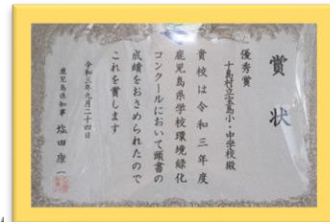 賞状
優秀賞
十島村立宝島小・中学校殿
貴校は令和三年度
鹿児島県学校環境緑化
コンクールにおいて頭書の
成績をおさめられたので
これを賞します
令和三年九月二十四日
鹿児島県知事 塩田康一